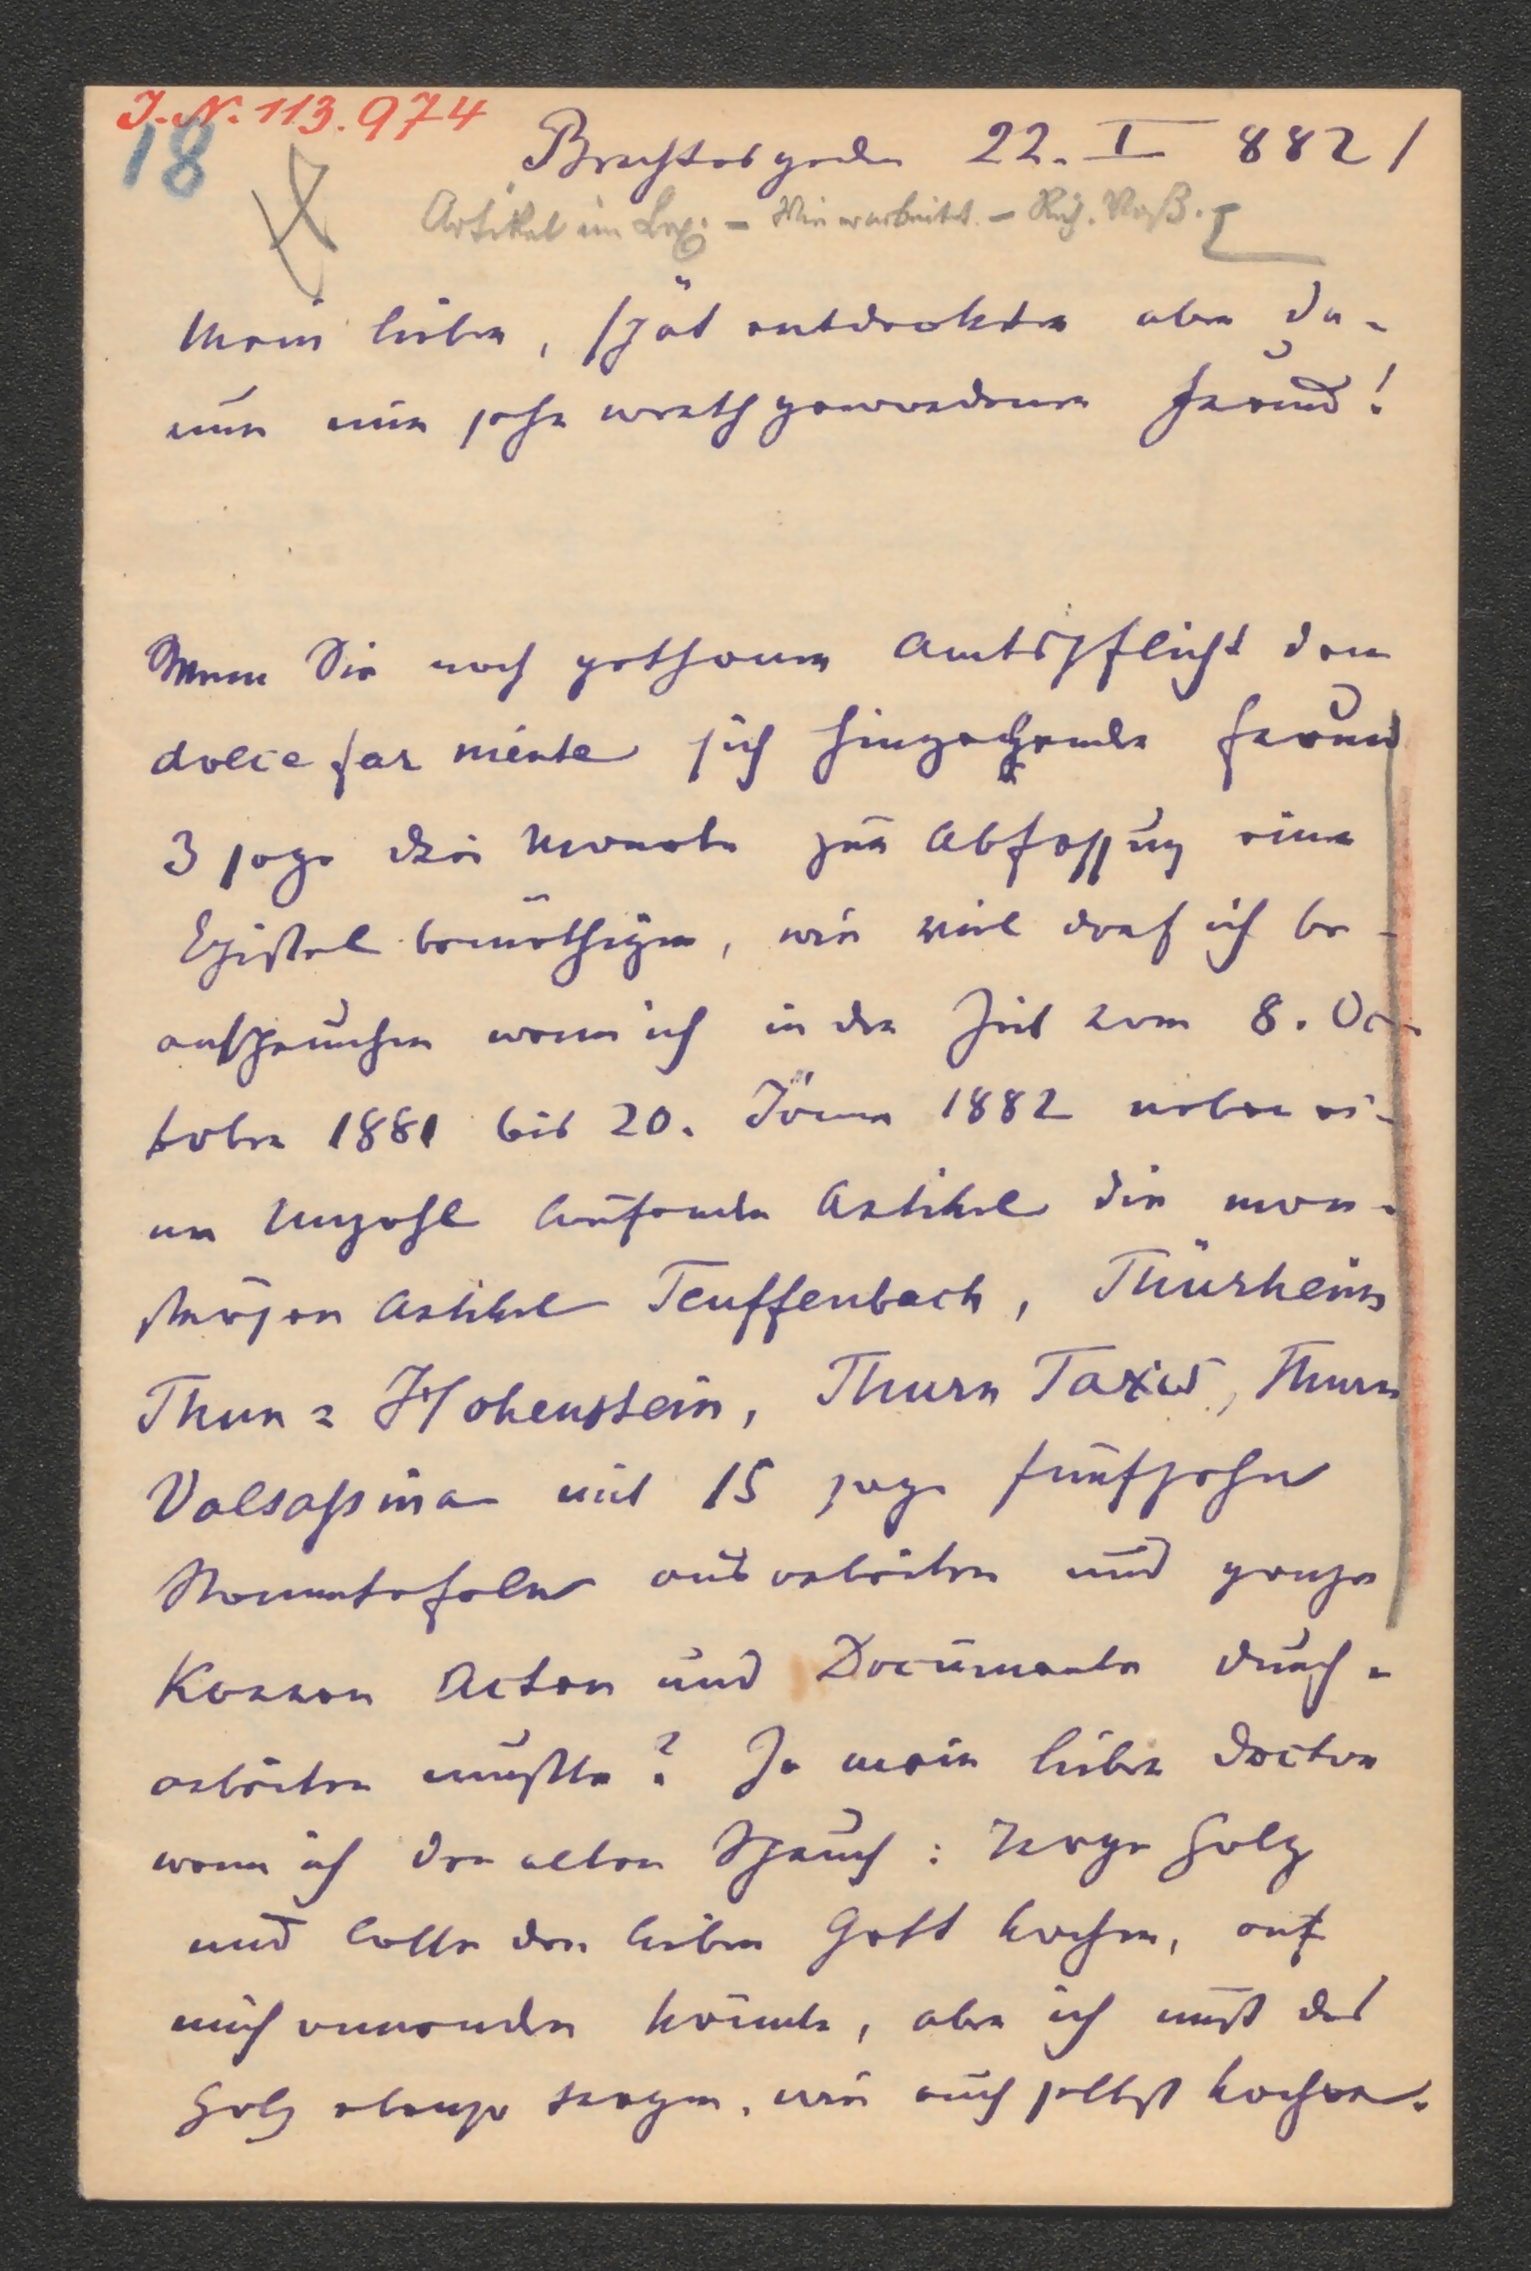 J.-N. 113.974
18
Berchtesgaden 22. I 882/
Artikel im Lex. – Wie erarbeitet. – Rich. Voß.
Mein lieber, spät entdeckter aber da-
rum mir sehr werth gewordener Freund!
Wenn Sie nach gethaner Amtspflicht dem
dolce far niente sich hingebender Freund
3 sage drei Monate zur Abfassung einer
Epistel benöthigen, wie viel darf ich be-
anspruchen wenn ich in der Zeit vom 8. Oc-
tober 1881 bis 20. Jänner 1882 neben ei-
ner Unzahl laufender Artikel die mon-
strösen Artikel Teuffenbach, Thürheim
Thun-Hohenstein, Thurn Taxis, Thurn
Valsassina mit 15 sage fünfzehn
Stammtafeln ausarbeiten und ganze
Karren Acten und Documente durch-
arbeiten mußte? Ja mein lieber Doctor
wenn ich den alten Spruch: Trage Holz
und lasse den lieben Gott kochen, auf
mich anwenden könnte, aber ich muß das
Holz ebenso tragen, wie auch selbst kochen.